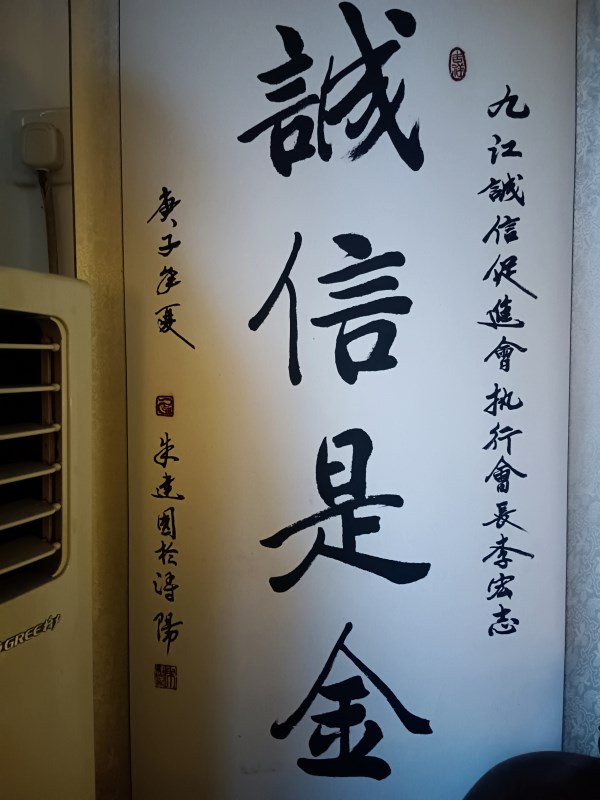 九江誠信促進會执行會長李宏志
誠信是金
庚子年夏
朱建國於潯陽
GREE格